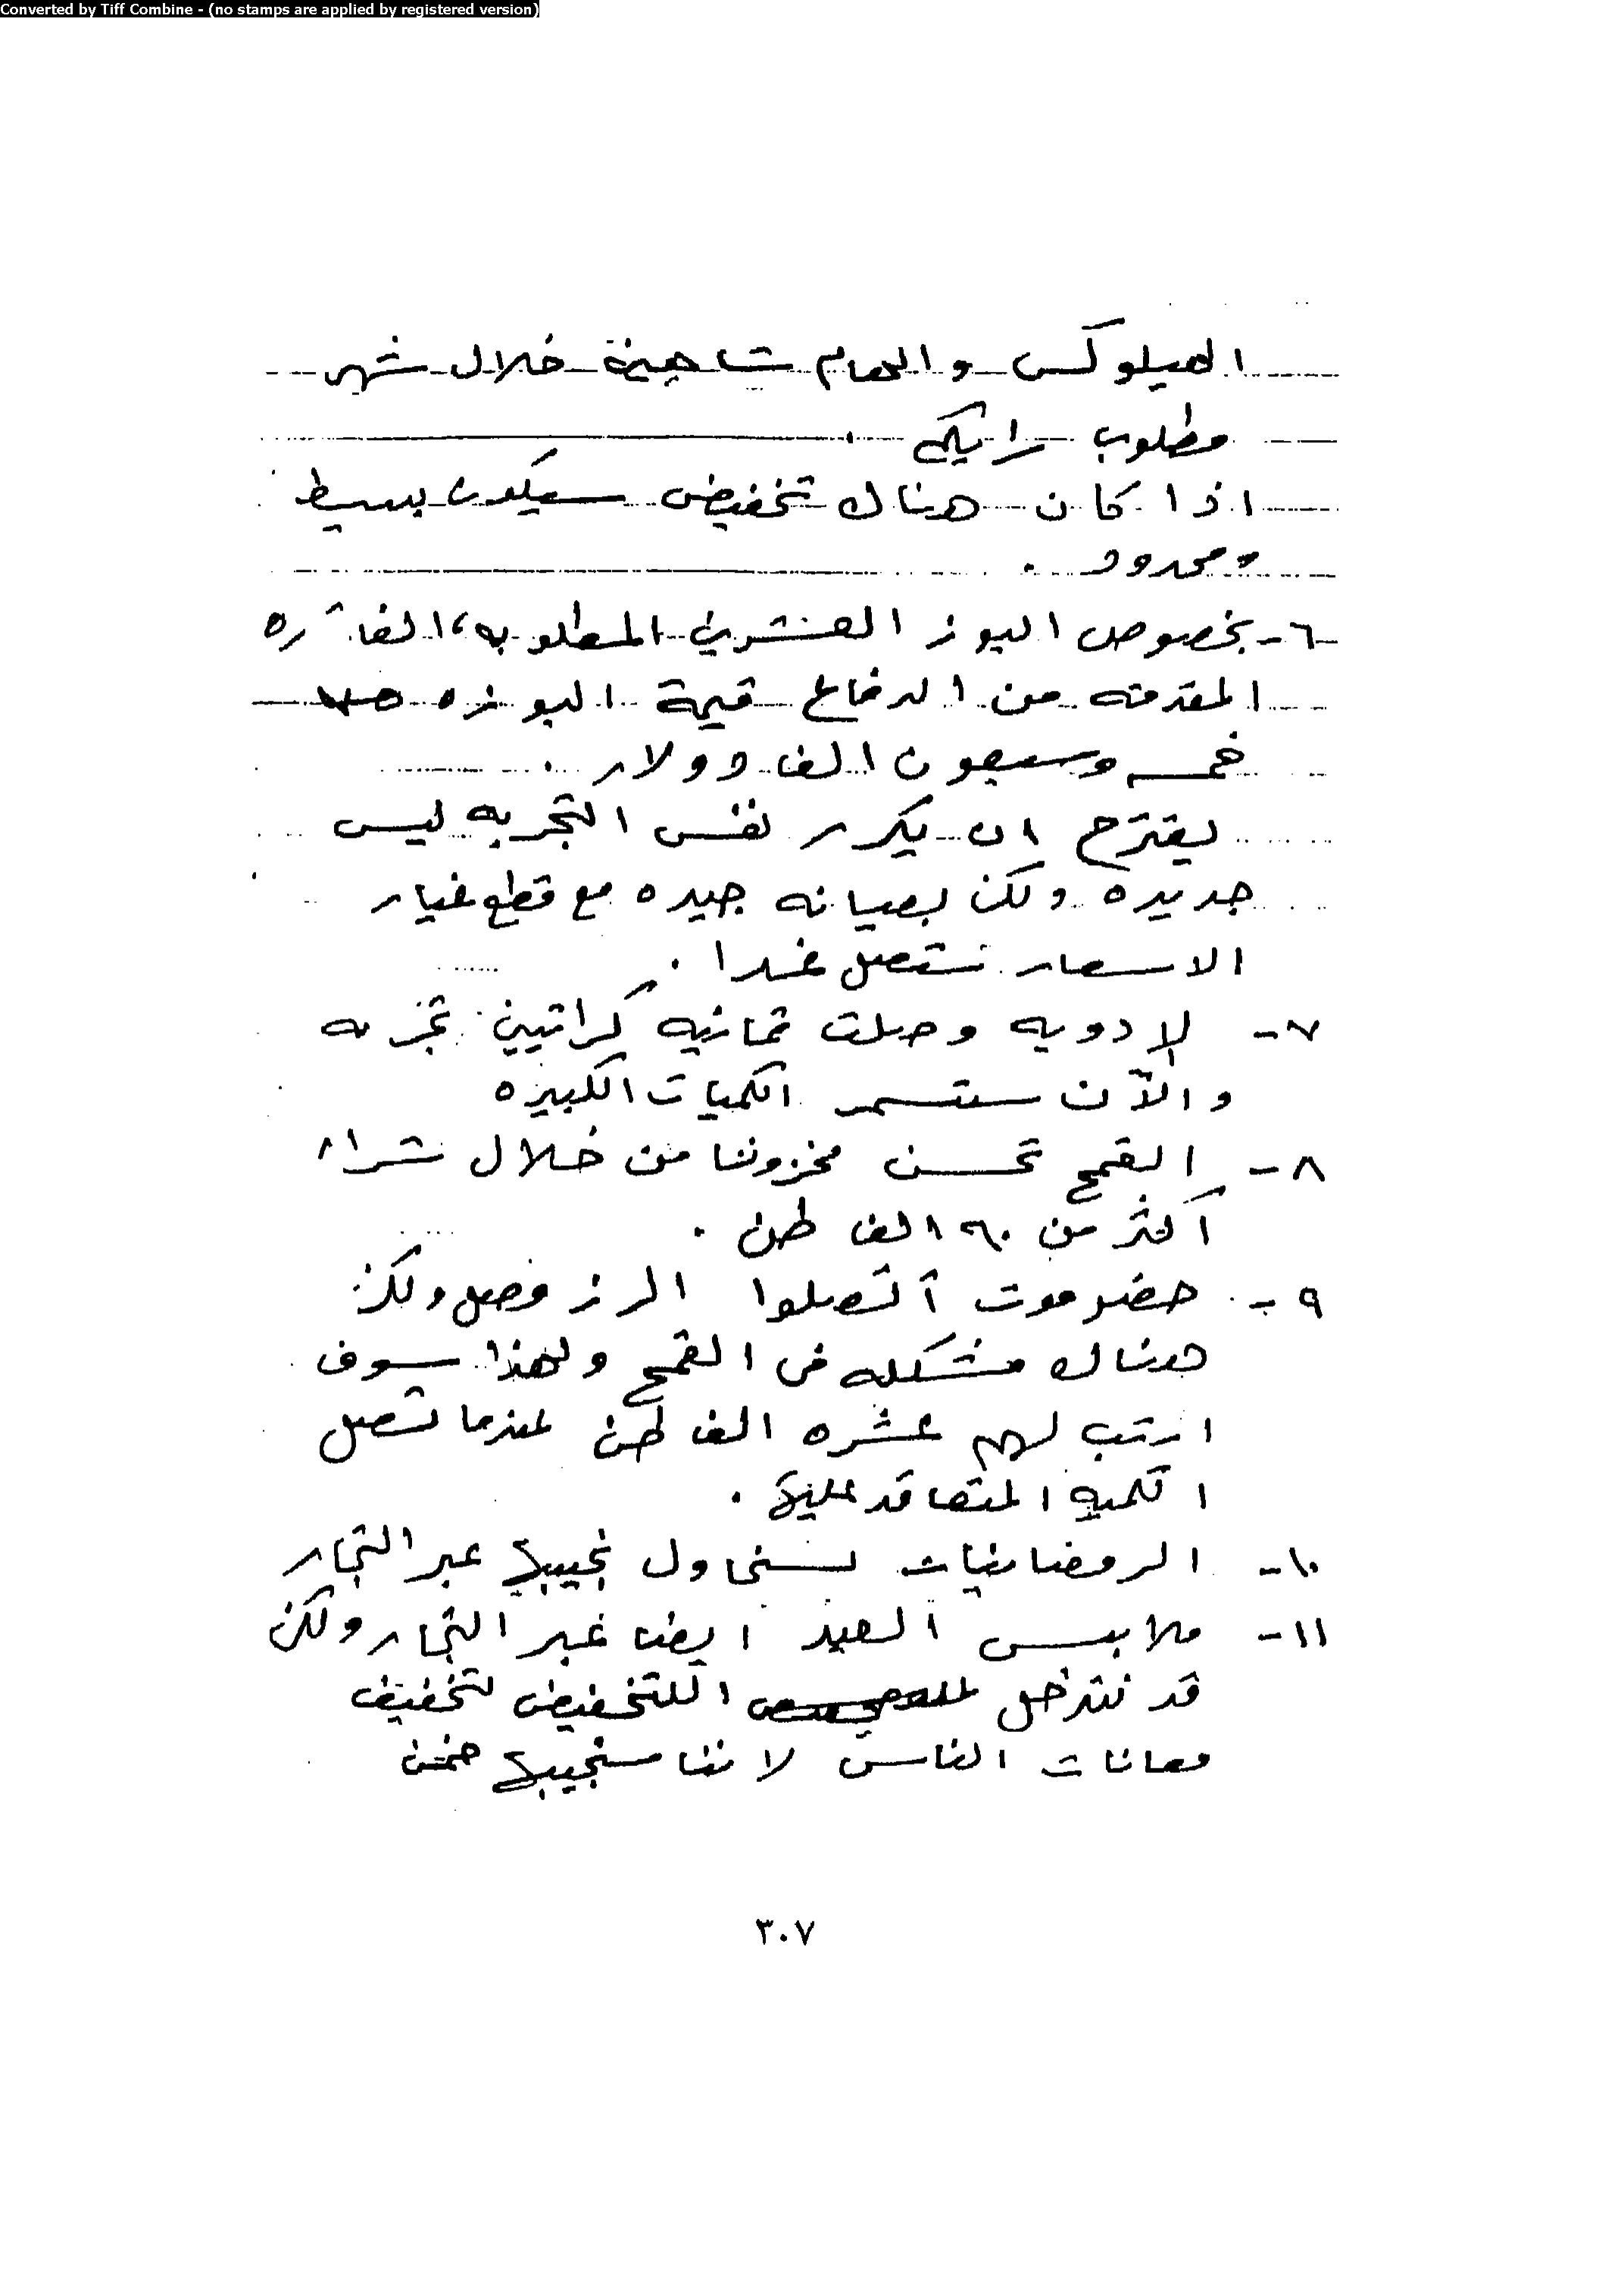 Converted by Tiff Combine - (no stamps are applied by registered version)
الهيلوكس والهام شاهينة خلال شهر
مطلوب رائيكم .
اذا كان هناك تخفيض سيكون بسيط
ومحدود .
٦- بخصوص البوز العشرين المطلوبه، الفاتوره
المقدمه من الدفاع قيمة البوزه
خمسه وسبعون الف دولار .
يقترح ان يكرر نفس التجربه ليس
جديده ولكن بصيانه جيده مع قطع غيار
الاسعار ستصل غدا .
٧- لادويه وصلت ثمانيه كراتين تجربه
والآن ستستمر الكميات الكبيره
٨- القمح تحسن مخزوننا من خلال شراء
أكثر من ٦٠ الف طن .
٩- حضرموت أتصلوا الرز وصل ولكن
هناك مشكله في القمح ولهذا سوف
ارتب لهم عشره الف طن عندما تصل
الكميه المتعاقد عليها .
١٠- الرمضانيات سنحاول نجيبها عبر التجار
١١- ملابس العيد ايضا عبر التجار ولكن
قد نتدخل اللتخفيض لتخفيف
معانات الناس لاننا سنجيبها ضمن
٣٠٧